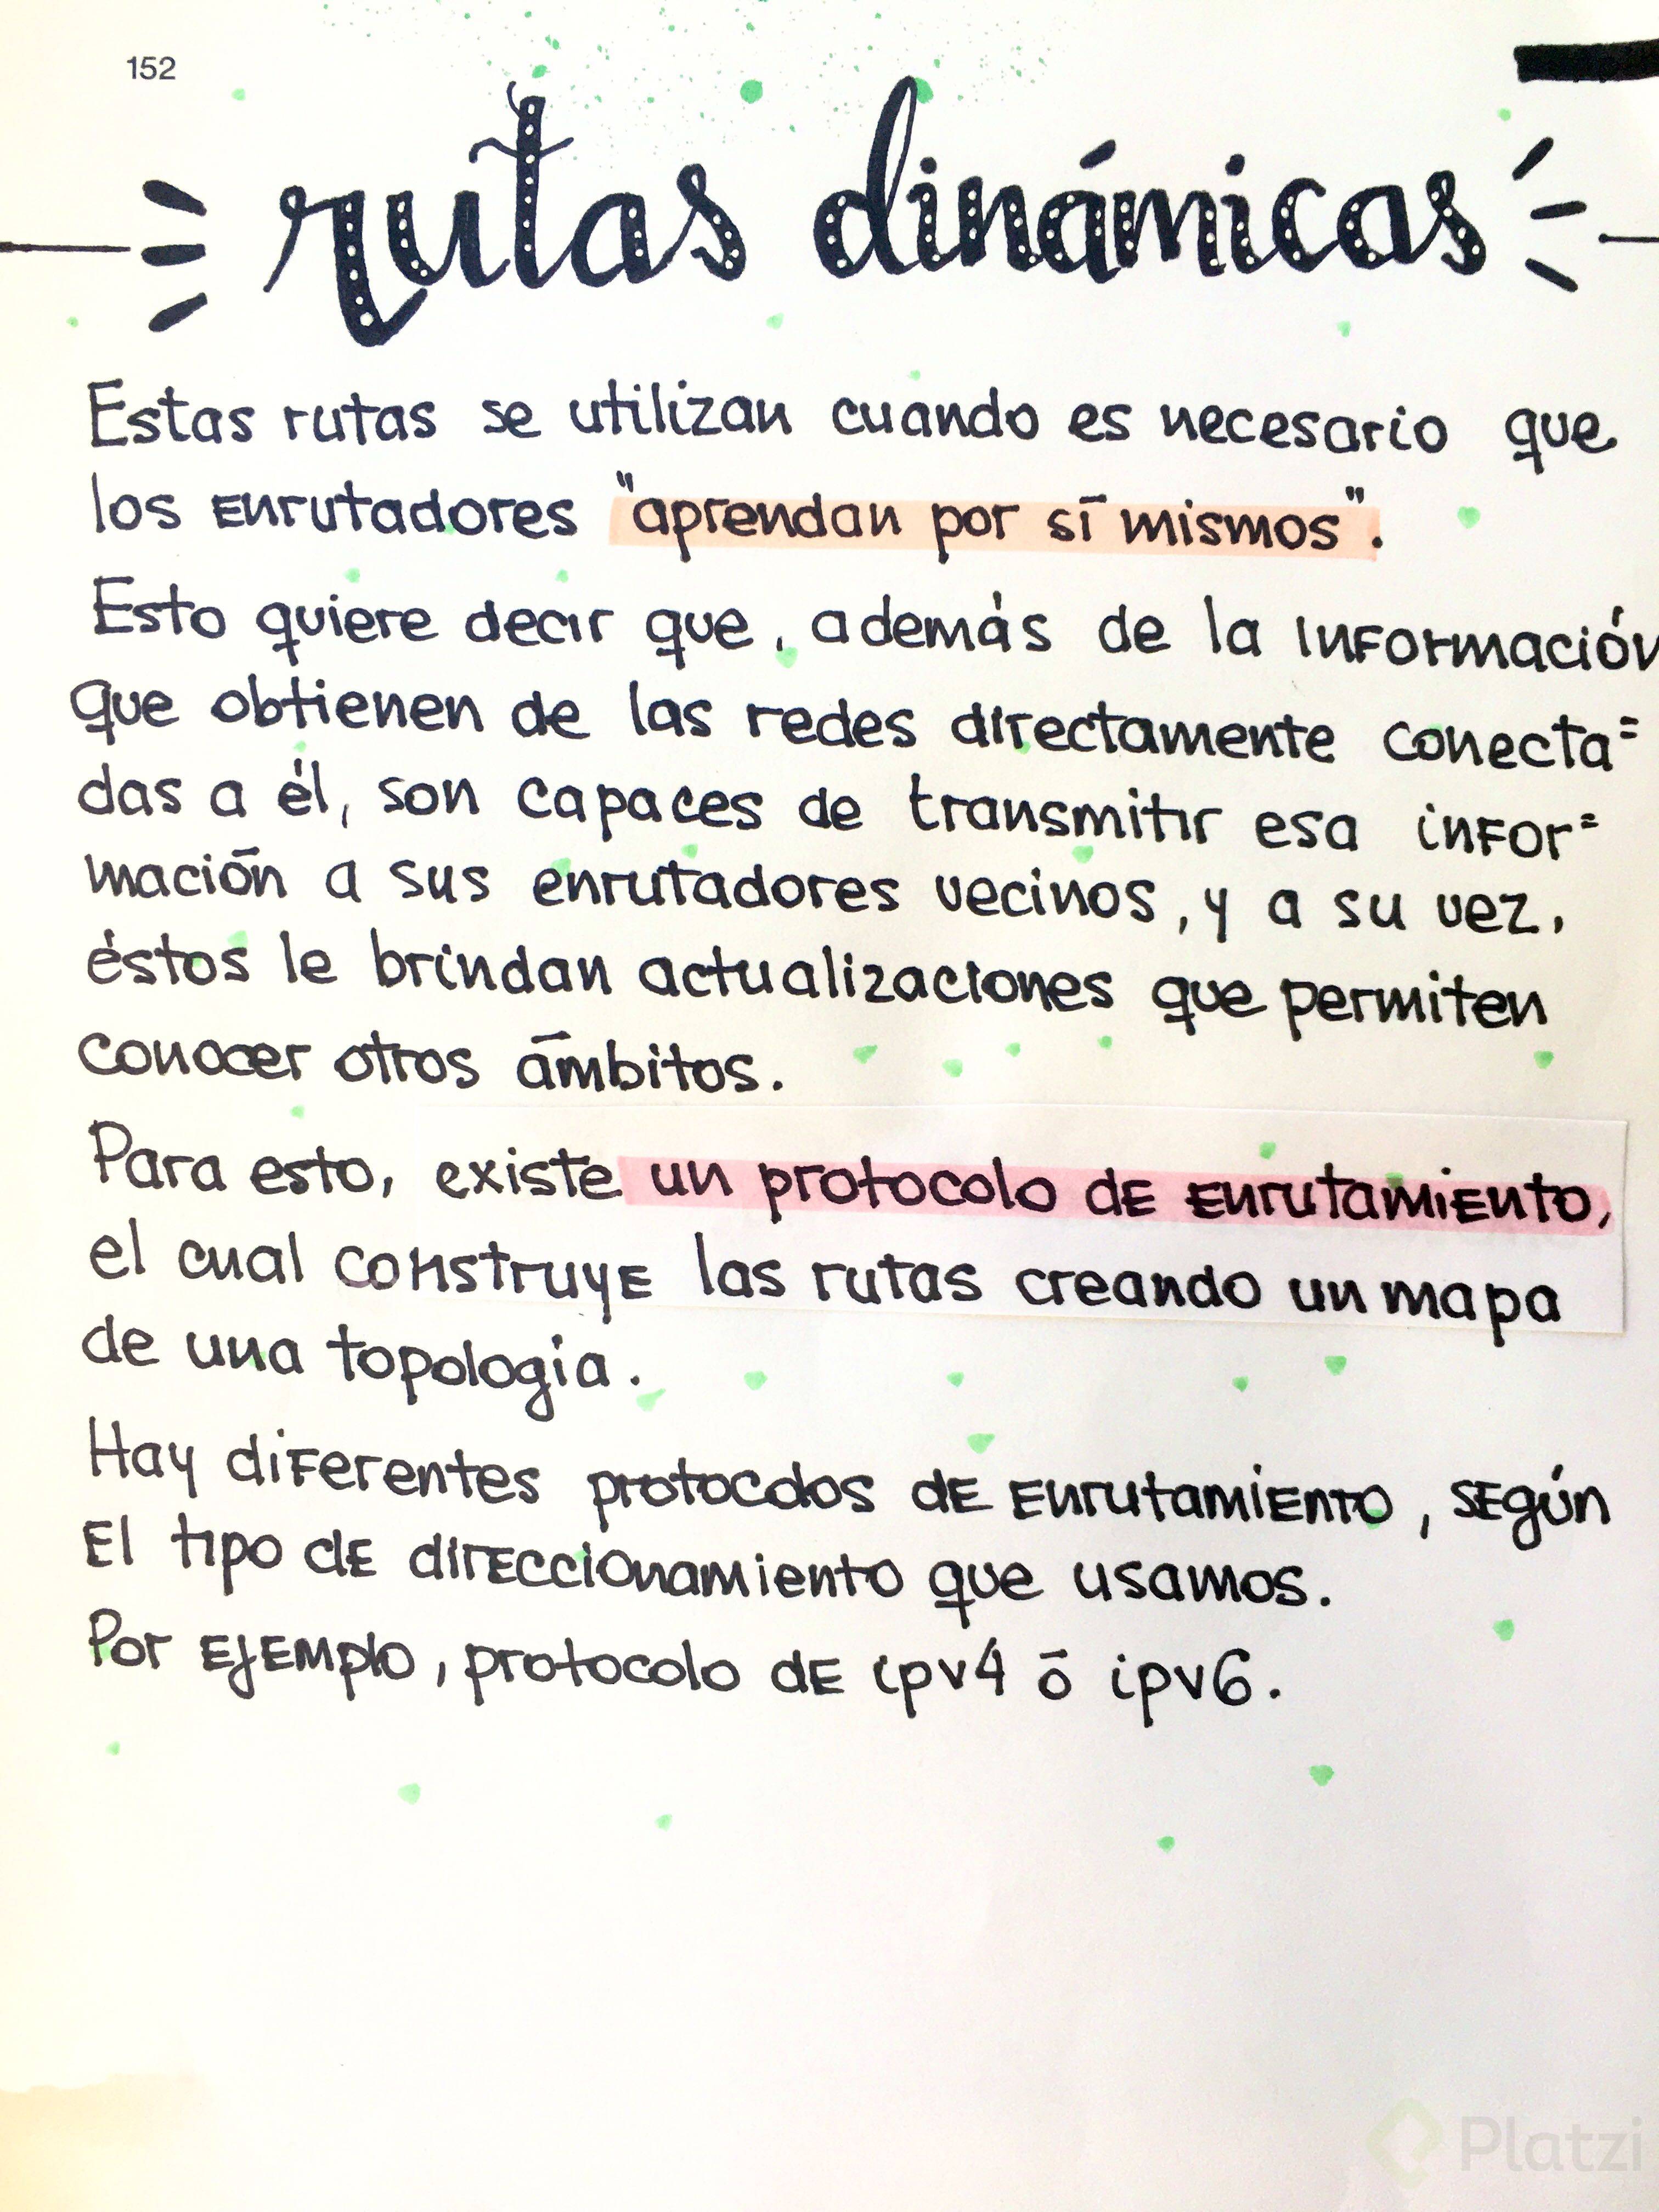 152
rutas dinámicas
Estas rutas se utilizan cuando es necesario que
los enrutadores "aprendan por sí mismos".
Esto quiere decir que, además de la información
que obtienen de las redes directamente conecta=
das a él, son capaces de transmitir esa infor=
mación a sus enrutadores vecinos, y a su vez,
éstos le brindan actualizaciones que permiten
conocer otros ámbitos.
Para esto, existe un protocolo de enrutamiento,
el cual construye las rutas creando un mapa
de una topología.
Hay diferentes protocolos de enrutamiento, según
El tipo de direccionamiento que usamos.
Por ejemplo, protocolo de ipv4 ó ipv6.
Platzi